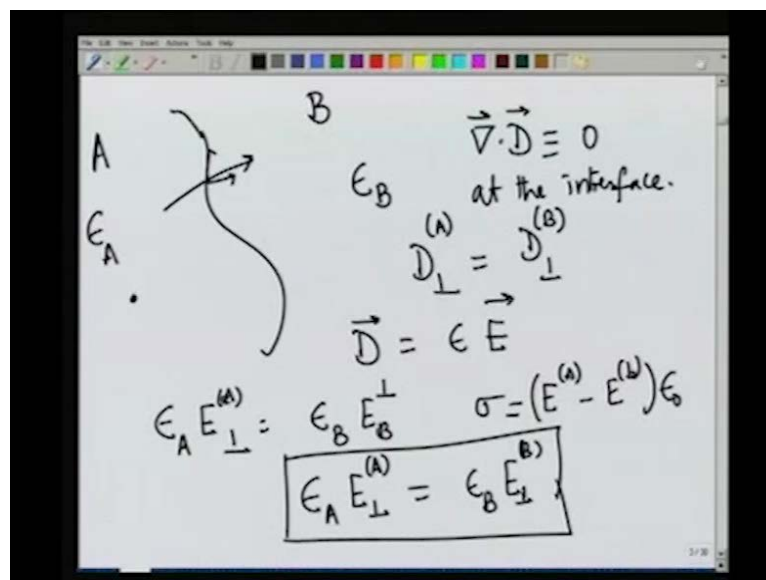 File Edit View Insert Actions Tools Help
B
A
∇⃗·D⃗ ≡ 0
at the interface.
ϵ_B
ϵ_A
D_⊥^(A) = D_⊥^(B)
D⃗ = ϵ E⃗
ϵ_A E_⊥^(A) = ϵ_B E_B^⊥
σ = (E^(A) - E^(b)) ϵ_0
ϵ_A E_⊥^(A) = ϵ_B E_⊥^(B)